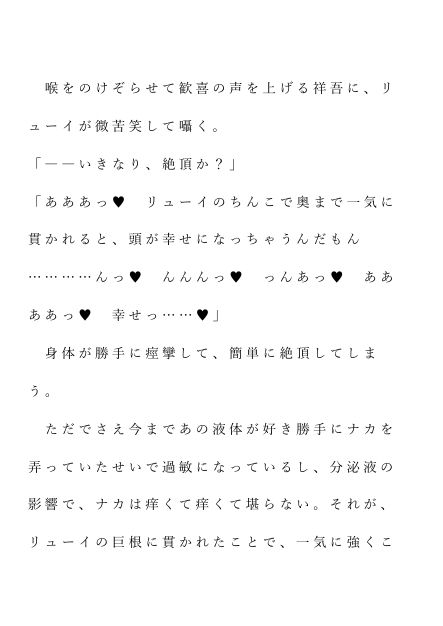 喉をのけぞらせて歓喜の声を上げる祥吾に、リ
ューイが微苦笑して囁く。
「――いきなり、絶頂か？」
「あああっ♥　リューイのちんこで奥まで一気に
貫かれると、頭が幸せになっちゃうんだもん
…………んっ♥　んんんっ♥　っんあっ♥　ああ
ああっ♥　幸せっ……♥」
　身体が勝手に痙攣して、簡単に絶頂してしま
う。
　ただでさえ今まであの液体が好き勝手にナカを
弄っていたせいで過敏になっているし、分泌液の
影響で、ナカは痒くて痒くて堪らない。それが、
リューイの巨根に貫かれたことで、一気に強くこ